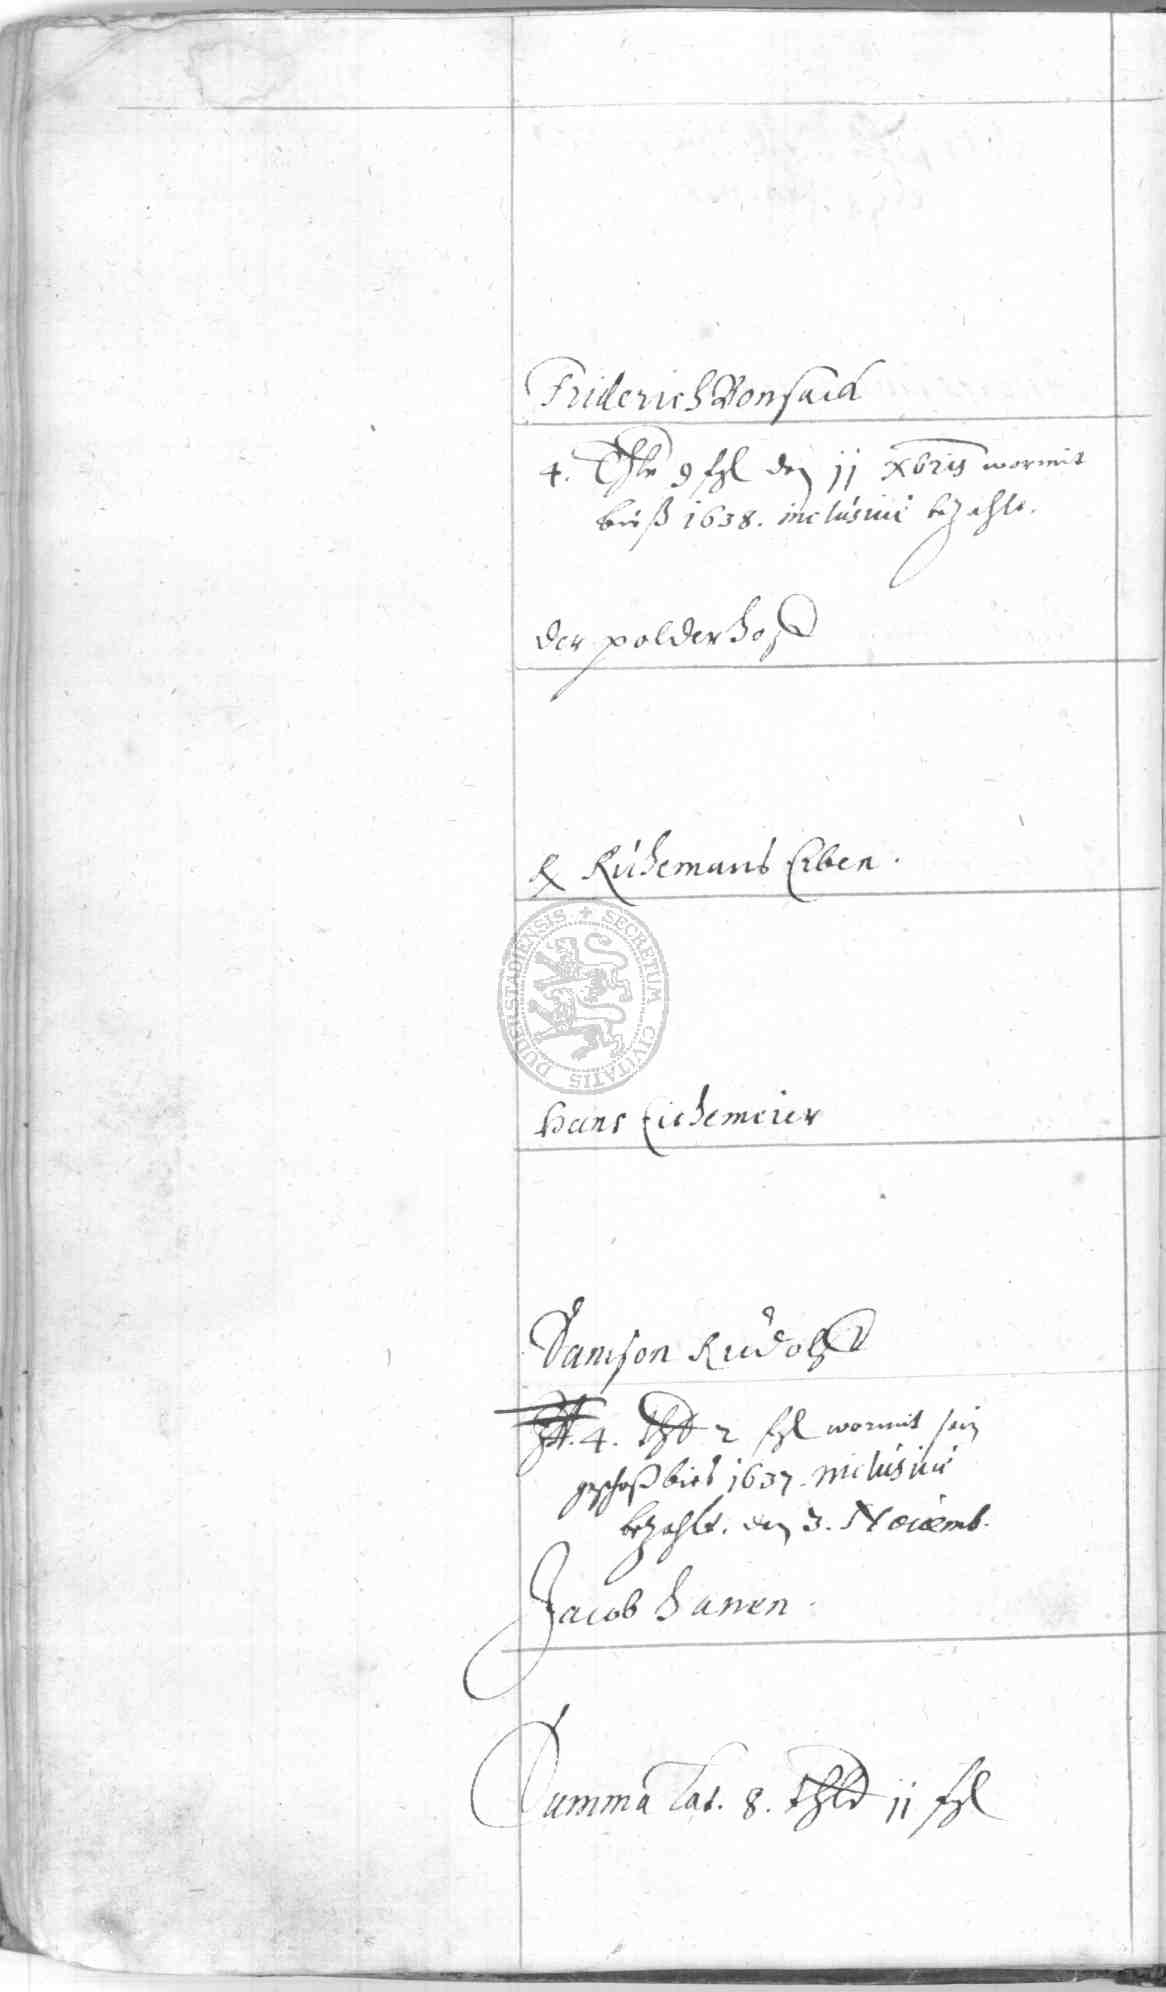 Friderich Bonsack
4. Thlr 9 ßgl den 11 Xbris wormit
biß 1638. inclusiué bezahlt.
der polderhoff
R Rühemans Erben.
SECRETUM CIVITATIS DUDERSTADIENSIS
Hans Eichemeier
Samson Rudolff
4. thlr 2 ßgl wormit sein
geschoß bieß 1637. inclusiué
bezahlt. den 3. Novemb.
Jacob Hanen.
Summa Lat. 8. thlr 11 ßgl